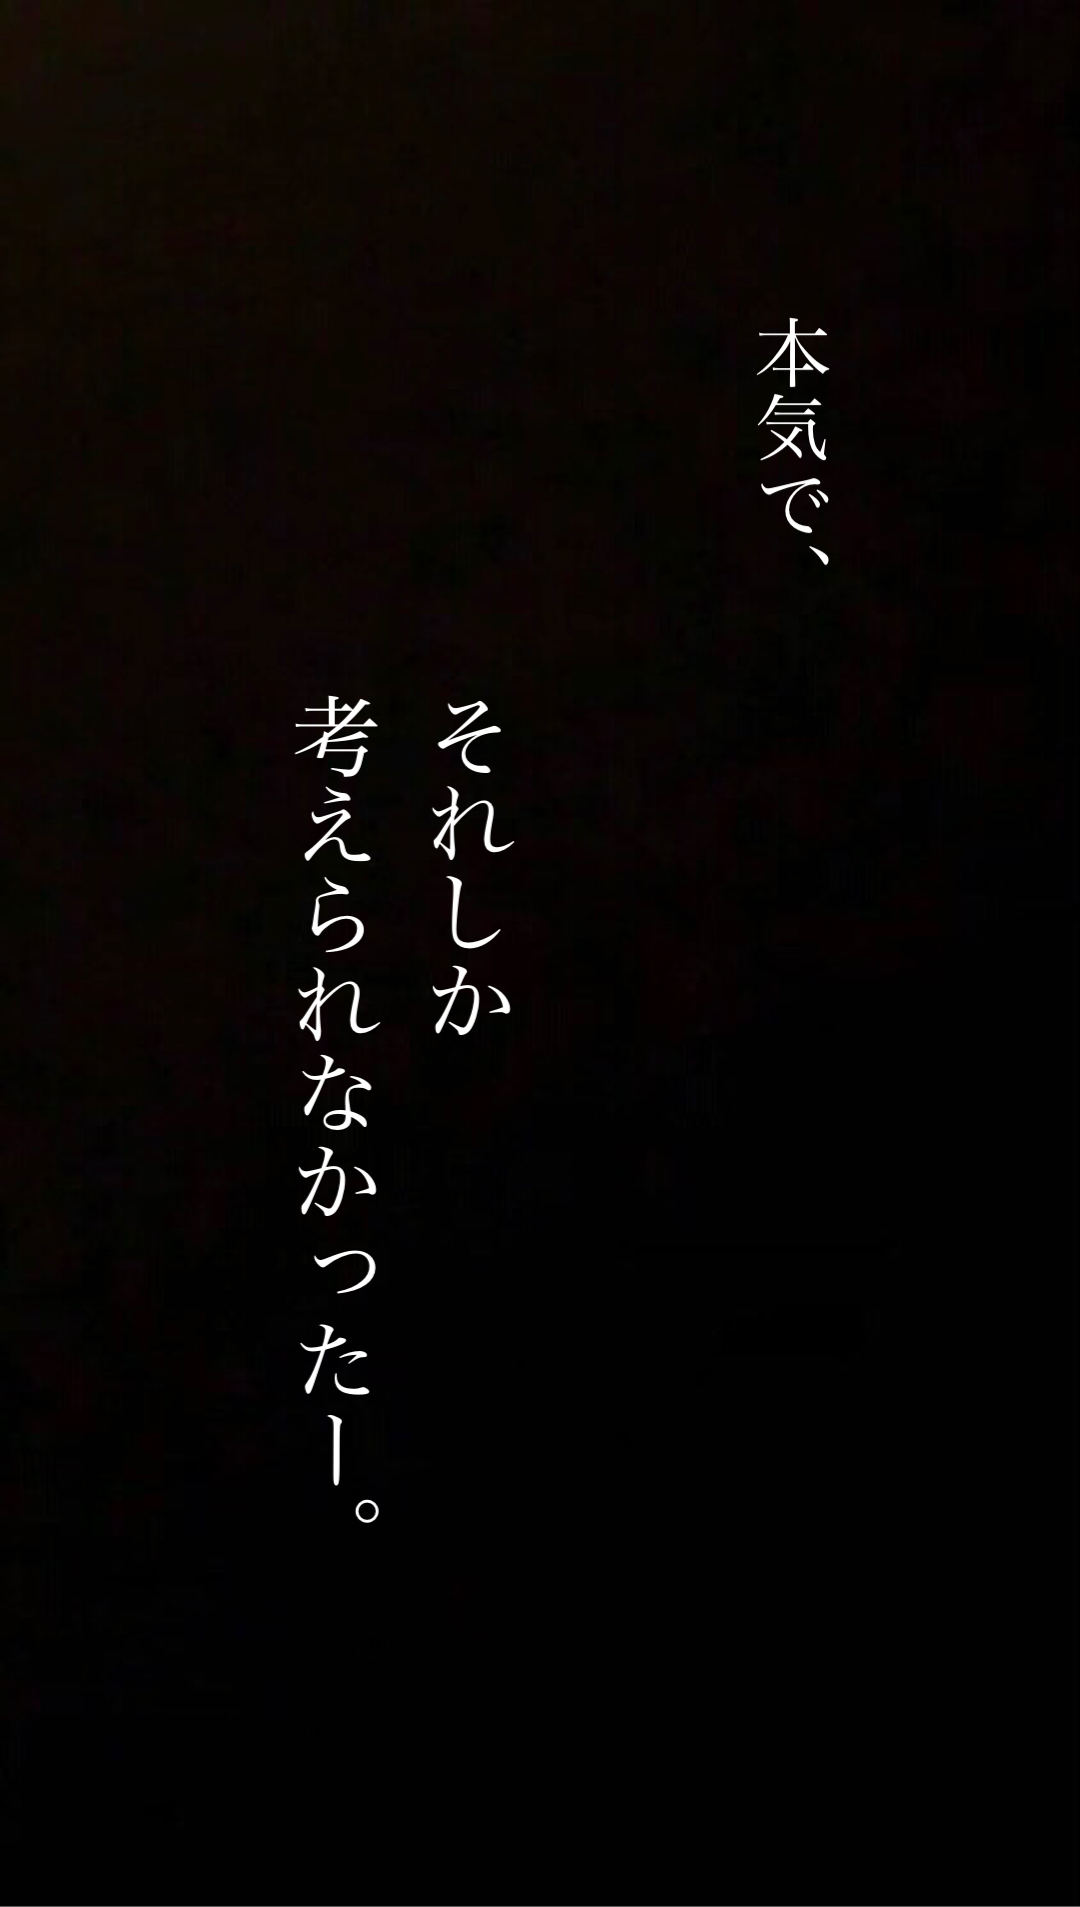 本気で、
それしか
考えられなかったー。